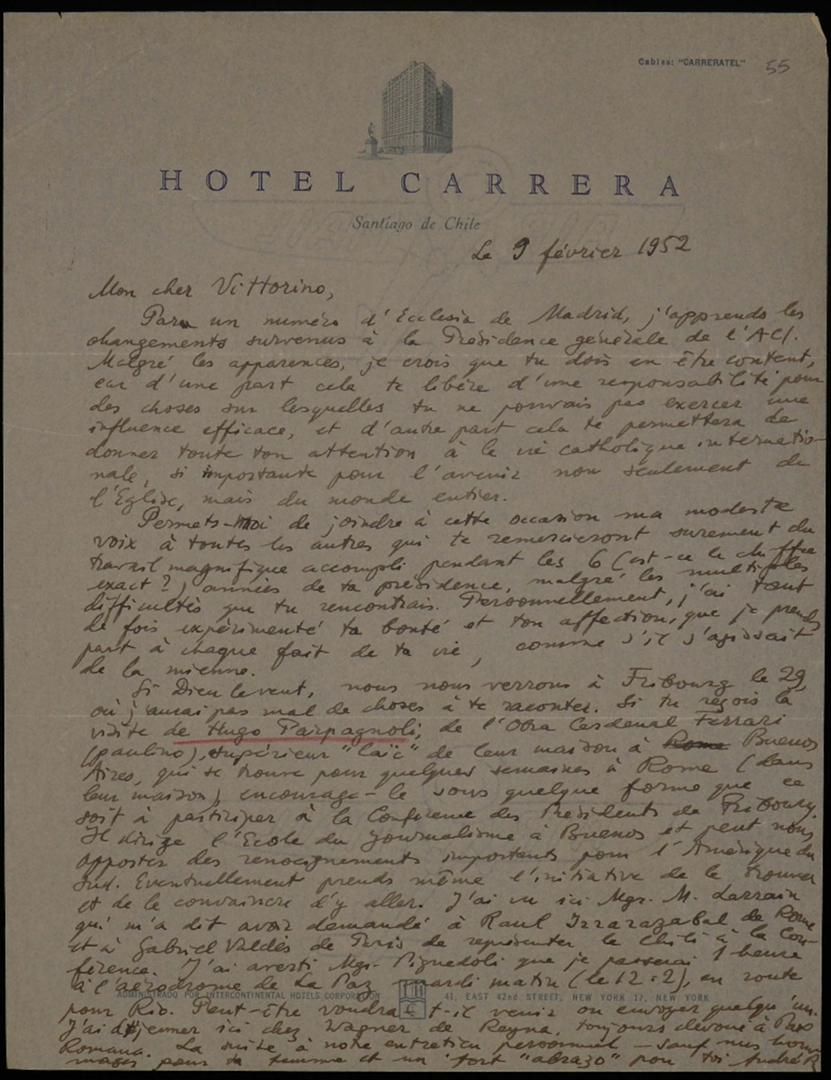 Cables: "CARRERATEL" 55
HOTEL CARRERA
Santiago de Chile
Le 9 février 1952
Mon cher Vittorino,
Para un numéro d'Ecclesia de Madrid, j'apprends les
changements survenus à la Présidence générale de l'ACI.
Malgré les apparences, je crois que tu dois en être content,
car d'une part cela te libère d'une responsabilité pour
des choses sur lesquelles tu ne pouvais pas exercer une
influence efficace, et d'autre part cela te permettera de
donner toute ton attention à la vie catholique internatio-
nale, si importante pour l'avenir non seulement de
l'Eglise, mais du monde entier.
Permets-moi de joindre à cette occasion ma modeste
voix à toutes les autres qui te remercieront surement du
travail magnifique accompli pendant les 6 (est-ce le chiffre
exact?) années de ta présidence, malgré les multiples
difficultés que tu rencontrais. Personnellement, j'ai tant
de fois expérimenté ta bonté et ton affection, que je prends
part à chaque fait de ta vie, comme s'il s'agissait
de la mienne.
Si Dieu le veut, nous nous verrons à Fribourg le 29,
où j'aurai pas mal de choses à te raconter. Si tu reçois la
visite de Hugo Parpagnoli, de l'Obra Cardenal Ferrari
(paulino), supérieur "laïc" de leur maison à Rome Buenos
Aires, qui se trouve pour quelques semaines à Rome (dans
leur maison) encourage-le sous quelque forme que ce
soit à participer à la Conférence des Présidents de Fribourg.
Il dirige l'Ecole du Journalisme à Buenos et peut nous
apporter des renseignements importants pour l'Amérique du
Sud. Eventuellement prends même l'initiative de le trouver
et de le convaincre d'y aller. J'ai vu ici Mgr. M. Larrain
qui m'a dit avoir demandé à Raul Irrarazabal de Rome
et à Gabriel Valdès de Paris de représenter le Chili à la Con-
férence. J'ai averti Mgr. Pignedoli que je passerai 1 heure
à l'aérodrome de La Paz mardi matin (le 12.2), en route
ADMINISTRADO POR INTERCONTINENTAL HOTELS CORPORATION 41, EAST 42nd STREET, NEW YORK 17, NEW YORK
pour Rio. Peut-être voudra-t-il venir ou envoyer quelqu'un.
J'ai déjeuner ici chez Wagner de Reyna, toujours dévoué à Pax
Romana. La suite à notre entretien personnel – sauf mes hom-
mages pour ta femme et un fort "abrazo" pour toi André R